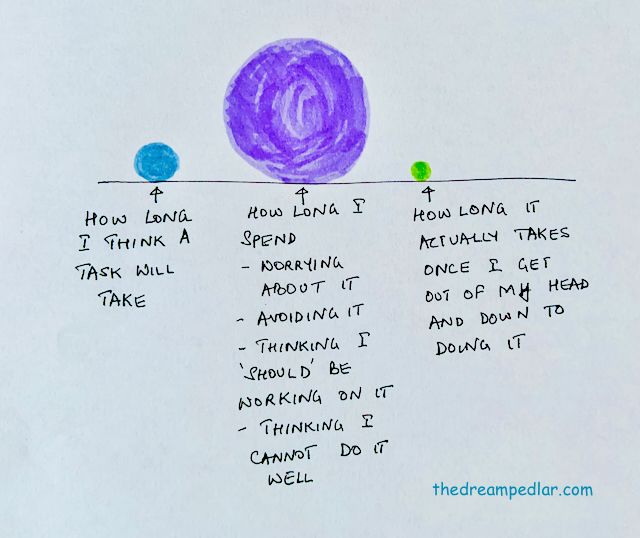 HOW LONG
I THINK A
TASK WILL
TAKE
HOW LONG I
SPEND
- WORRYING
ABOUT IT
- AVOIDING IT
- THINKING I
'SHOULD' BE
WORKING ON IT
- THINKING I
CANNOT DO IT
WELL
HOW LONG IT
ACTUALLY TAKES
ONCE I GET
OUT OF MY HEAD
AND DOWN TO
DOING IT
thedreampedlar.com